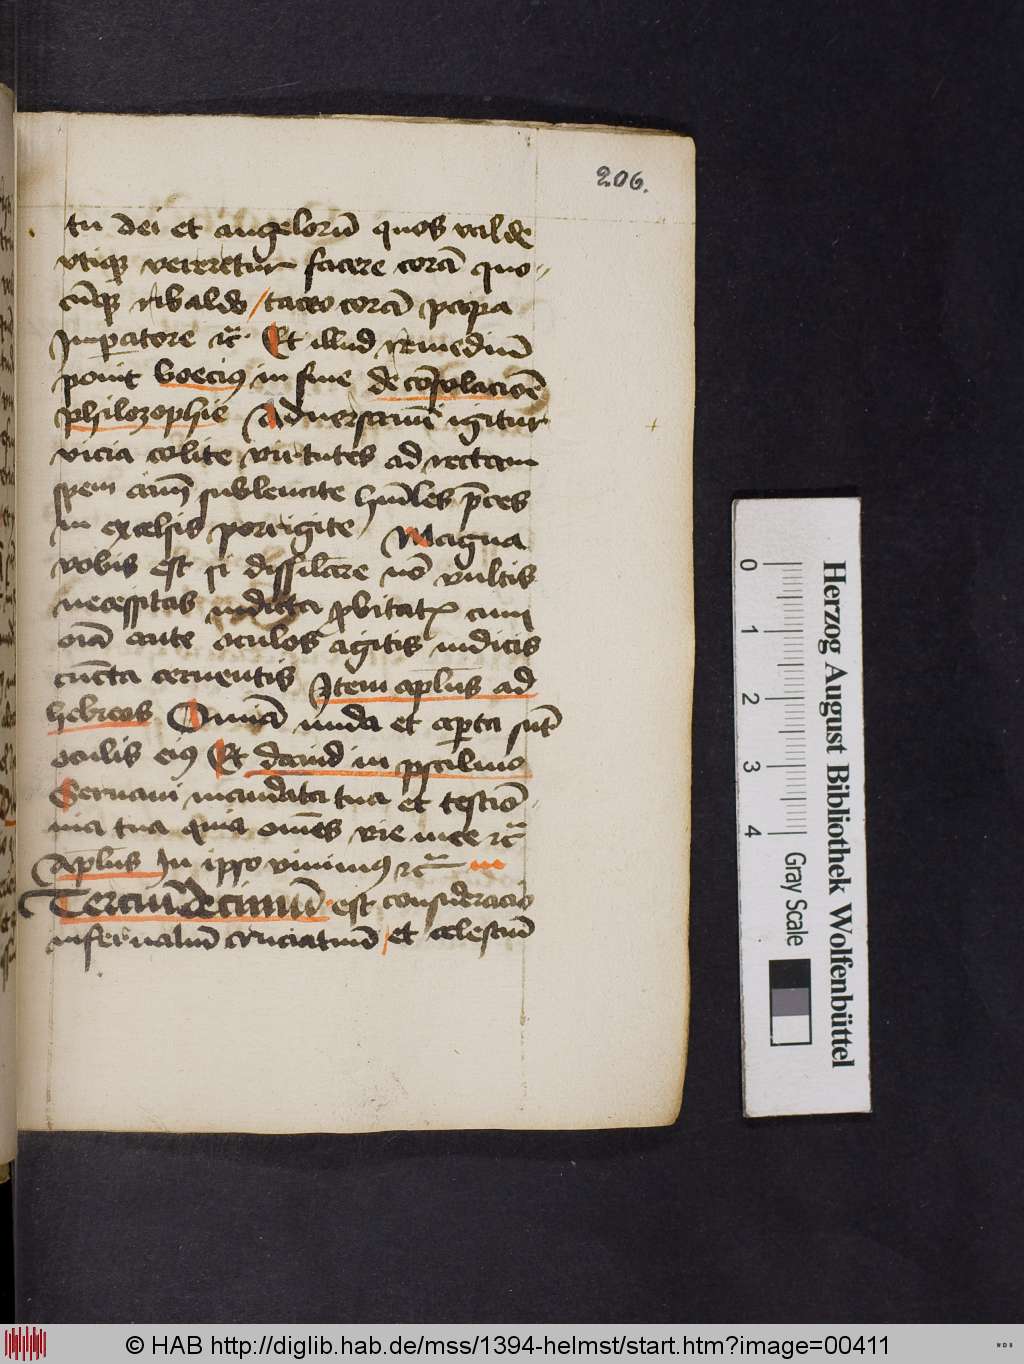 206.
tu dei et angeloru̅ quos valde
vtiqꝫ vereretur facere cora̅ quo-
cu̅qꝫ ribaldo / taceo cora̅ papa
Imperatore ⁊c̅ Et illud remediu̅
ponit boecius in fine de co̅solacio̅e
philozophie Aduersamı̅ igitur
vicia colite virtutes ad rectam
spem ai̅m subleuate hu̅iles p̅ces
in excelsis porrigite Magna
vobis est si dissil̅are no̅ vultis
necessitas indicta ꝓbitatꝭ cum
oı̅a ante oculos agitis iudicis
cu̅cta cernentis Item apl̅us ad
hebreos Omı̅a nuda et ap̅ta su̅t
oculis eiꝰ Et dauid in psalmo
Seruaui mandata tua et testi̅o-
nia tua quia om̅es vie mee ⁊c̅
Apl̅us In ipso viuimꝰ ⁊c̅
Terciu̅decimu̅ est considꝰacio
infernaliu̅ cruciatuu̅ / et celestiu̅
Herzog August Bibliothek Wolfenbüttel
0 1 2 3 4 Gray Scale
© HAB http://diglib.hab.de/mss/1394-helmst/start.htm?image=00411